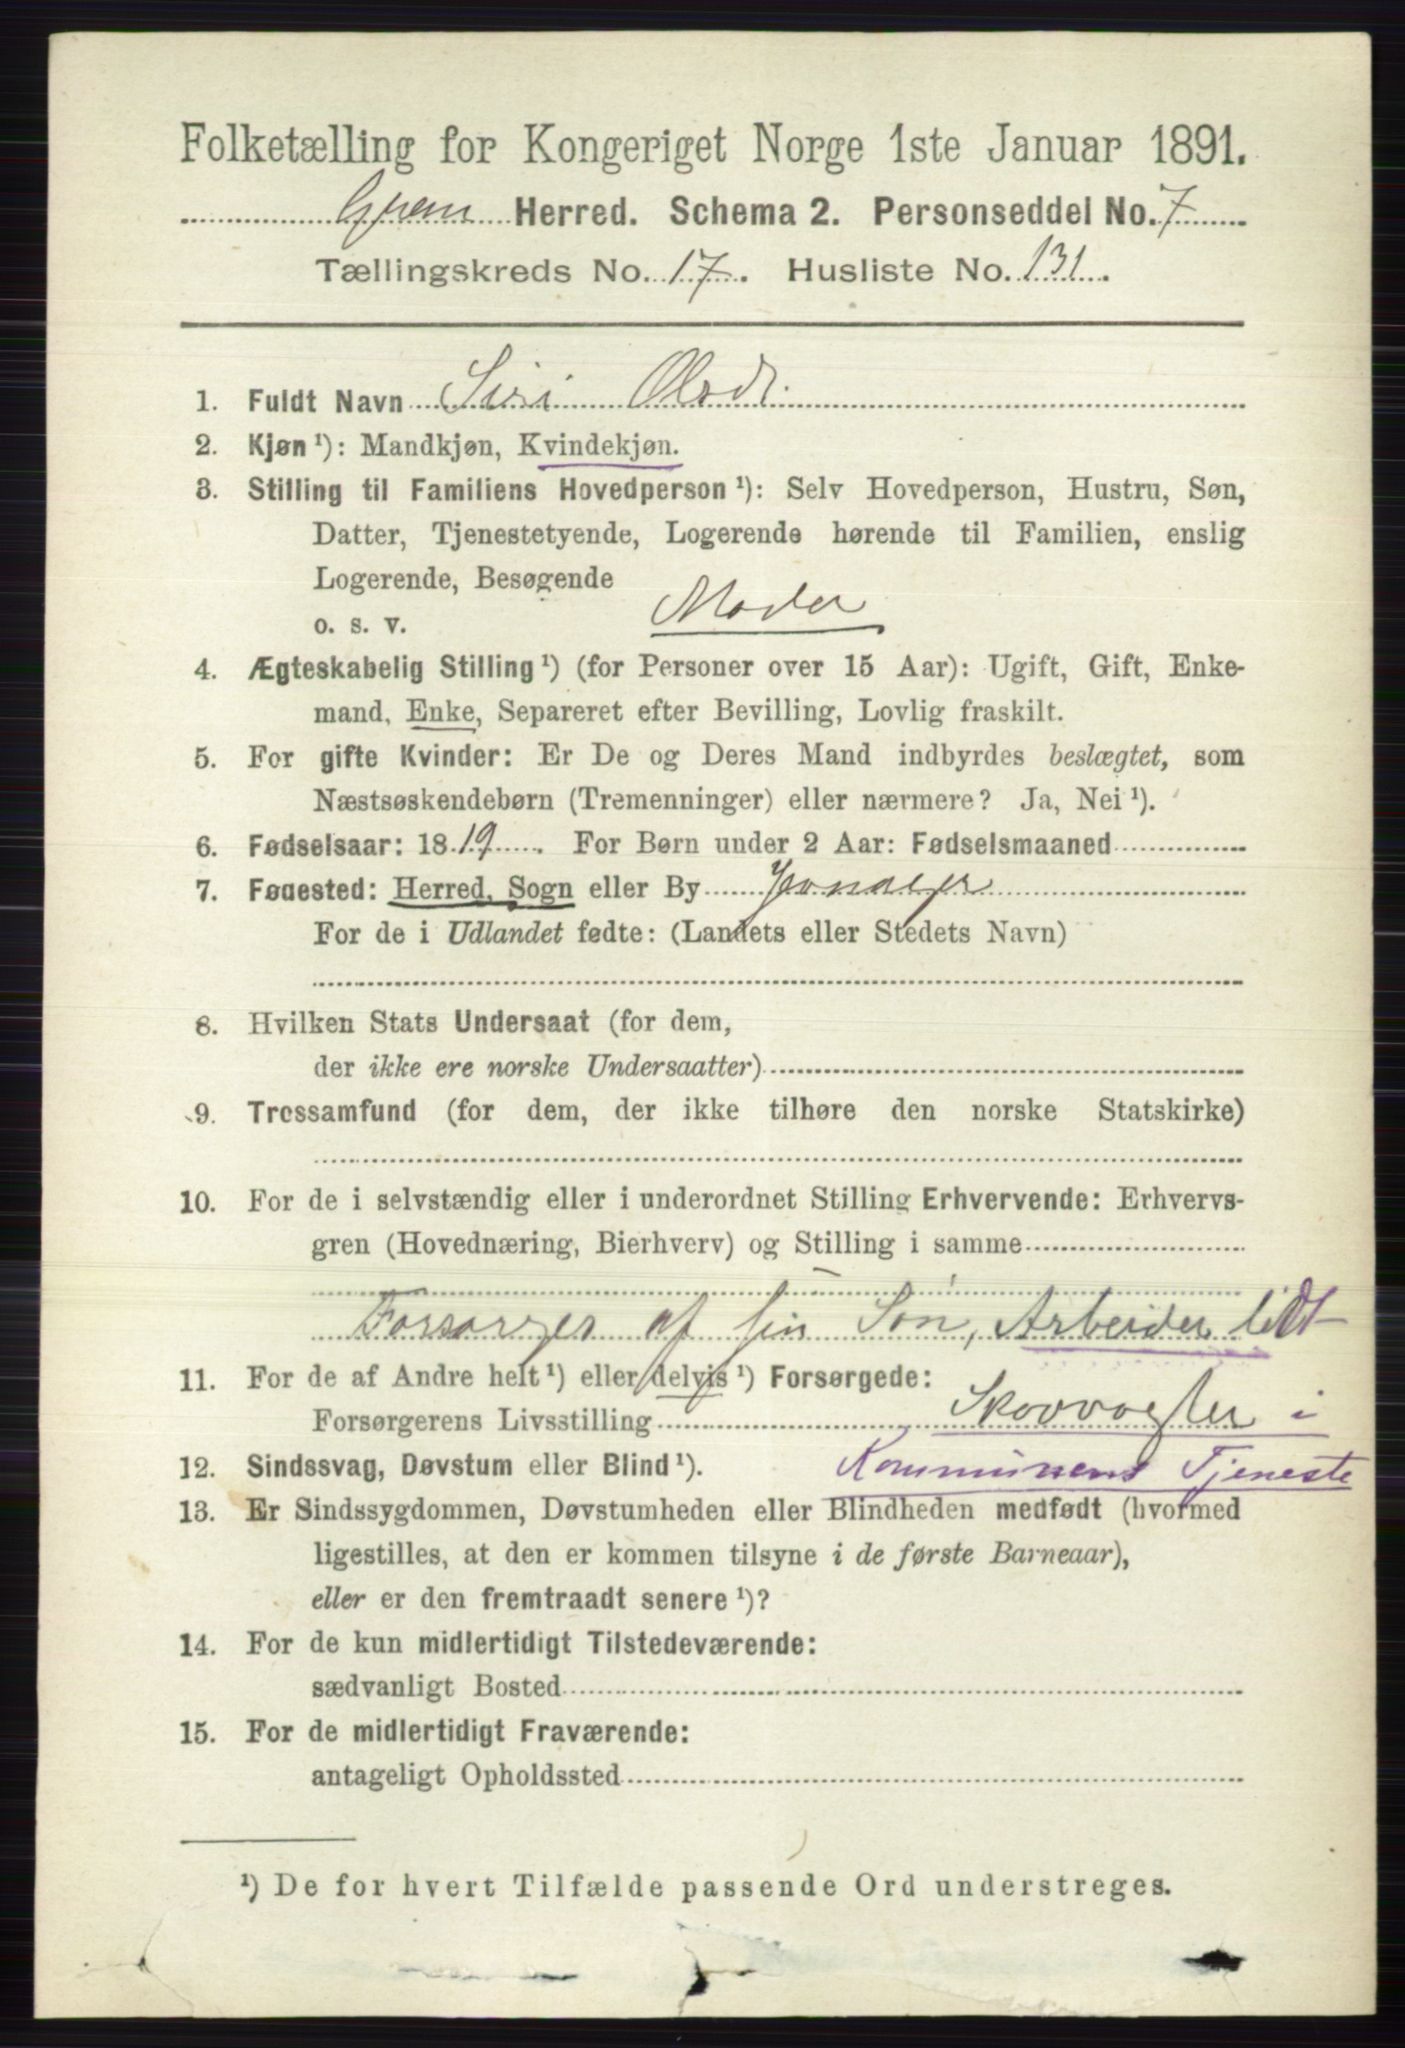 Folketælling for Kongeriget Norge 1ste Januar 1891.
Gran Herred. Schema 2. Personseddel No. 7
Tællingskreds No. 17. Husliste No. 131.
1. Fuldt Navn Siri Olsdt.
2. Kjøn¹): Mandkjøn, Kvindekjøn.
3. Stilling til Familiens Hovedperson¹): Selv Hovedperson, Hustru, Søn,
Datter, Tjenestetyende, Logerende hørende til Familien, enslig
Logerende, Besøgende
o. s. v. Moder
4. Ægteskabelig Stilling¹) (for Personer over 15 Aar): Ugift, Gift, Enke-
mand, Enke, Separeret efter Bevilling, Lovlig fraskilt.
5. For gifte Kvinder: Er De og Deres Mand indbyrdes beslægtet, som
Næstsøskendebørn (Tremenninger) eller nærmere? Ja, Nei¹).
6. Fødselsaar: 1819. For Børn under 2 Aar: Fødselsmaaned
7. Fødested: Herred, Sogn eller By Jevnager
For de i Udlandet fødte: (Landets eller Stedets Navn)
8. Hvilken Stats Undersaat (for dem,
der ikke ere norske Undersaatter)
9. Trossamfund (for dem, der ikke tilhøre den norske Statskirke)
10. For de i selvstændig eller i underordnet Stilling Erhvervende: Erhvervs-
gren (Hovednæring, Bierhverv) og Stilling i samme
Forsørges af sin Søn, Arbeider lidt
11. For de af Andre helt¹) eller delvis¹) Forsørgede:
Forsørgerens Livsstilling Skovvogter i
12. Sindssvag, Døvstum eller Blind¹). Kommunens Tjeneste
13. Er Sindssygdommen, Døvstumheden eller Blindheden medfødt (hvormed
ligestilles, at den er kommen tilsyne i de første Barneaar),
eller er den fremtraadt senere¹)?
14. For de kun midlertidigt Tilstedeværende:
sædvanligt Bosted
15. For de midlertidigt Fraværende:
antageligt Opholdssted
¹) De for hvert Tilfælde passende Ord understreges.